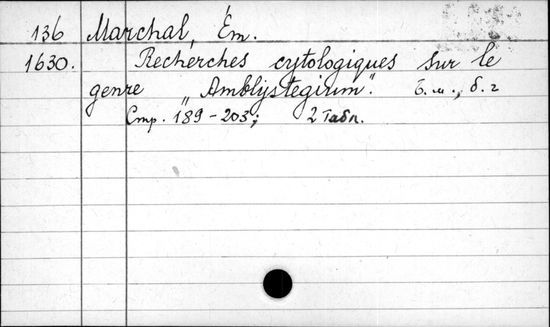 136 Marchal, Ém.
1630. Recherches cytologiques sur le
genre "Amblystegium". Б. м., б. г
Стр. 189-203; 2 табл.